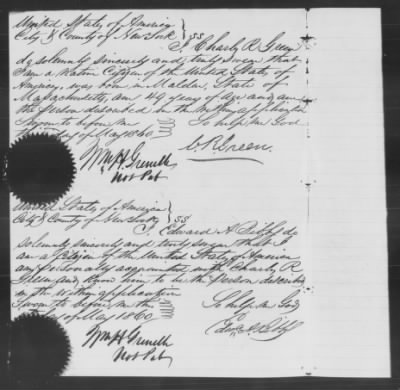 United States of America
City & County of New York } SS
I, Charles R Green
do solemnly sincerely and truly swear that
I am a Native Citizen of the United States of
America, was born in Malden, State of
Massachusetts, am 49 years of Age and am
the Person described in the within application
Sworn to before me this So help me God
day of May 1860
C. R. Green
Wm H. Not Pub
United States of America
City & County of New York } SS
I, Edward A. do
solemnly sincerely and truly swear that I
am a Citizen of the United States of America
am personally acquainted with Charles R
Green and know him to be the Person described
in the within application
Sworn to before me this So help me God
day of May 1860
Wm H. Not Pub